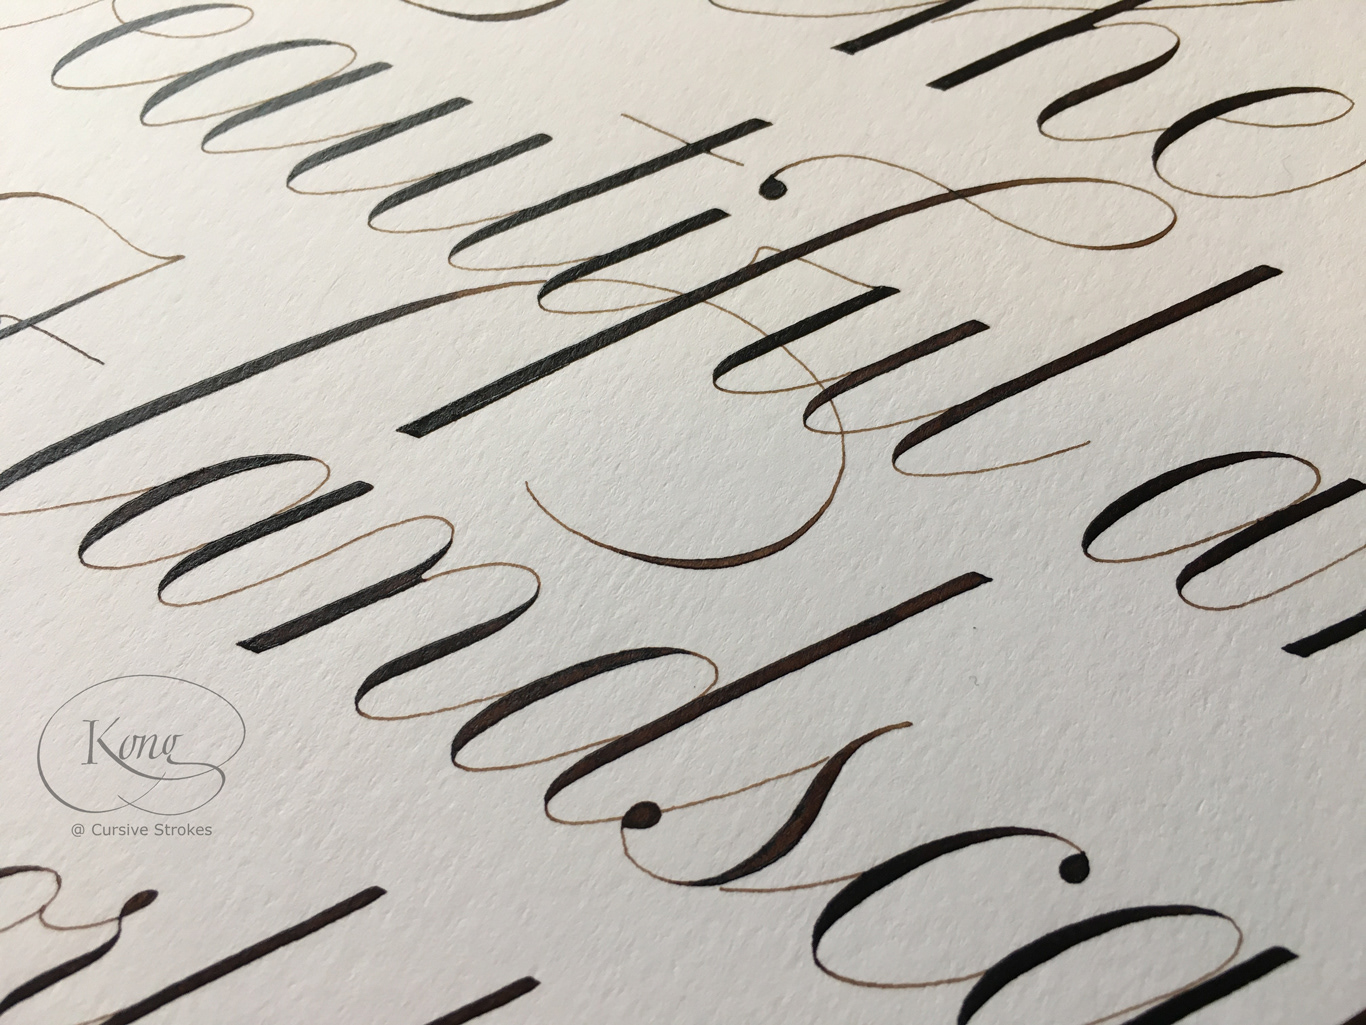 he
eautiful an
landsca
Kong
@ Cursive Strokes